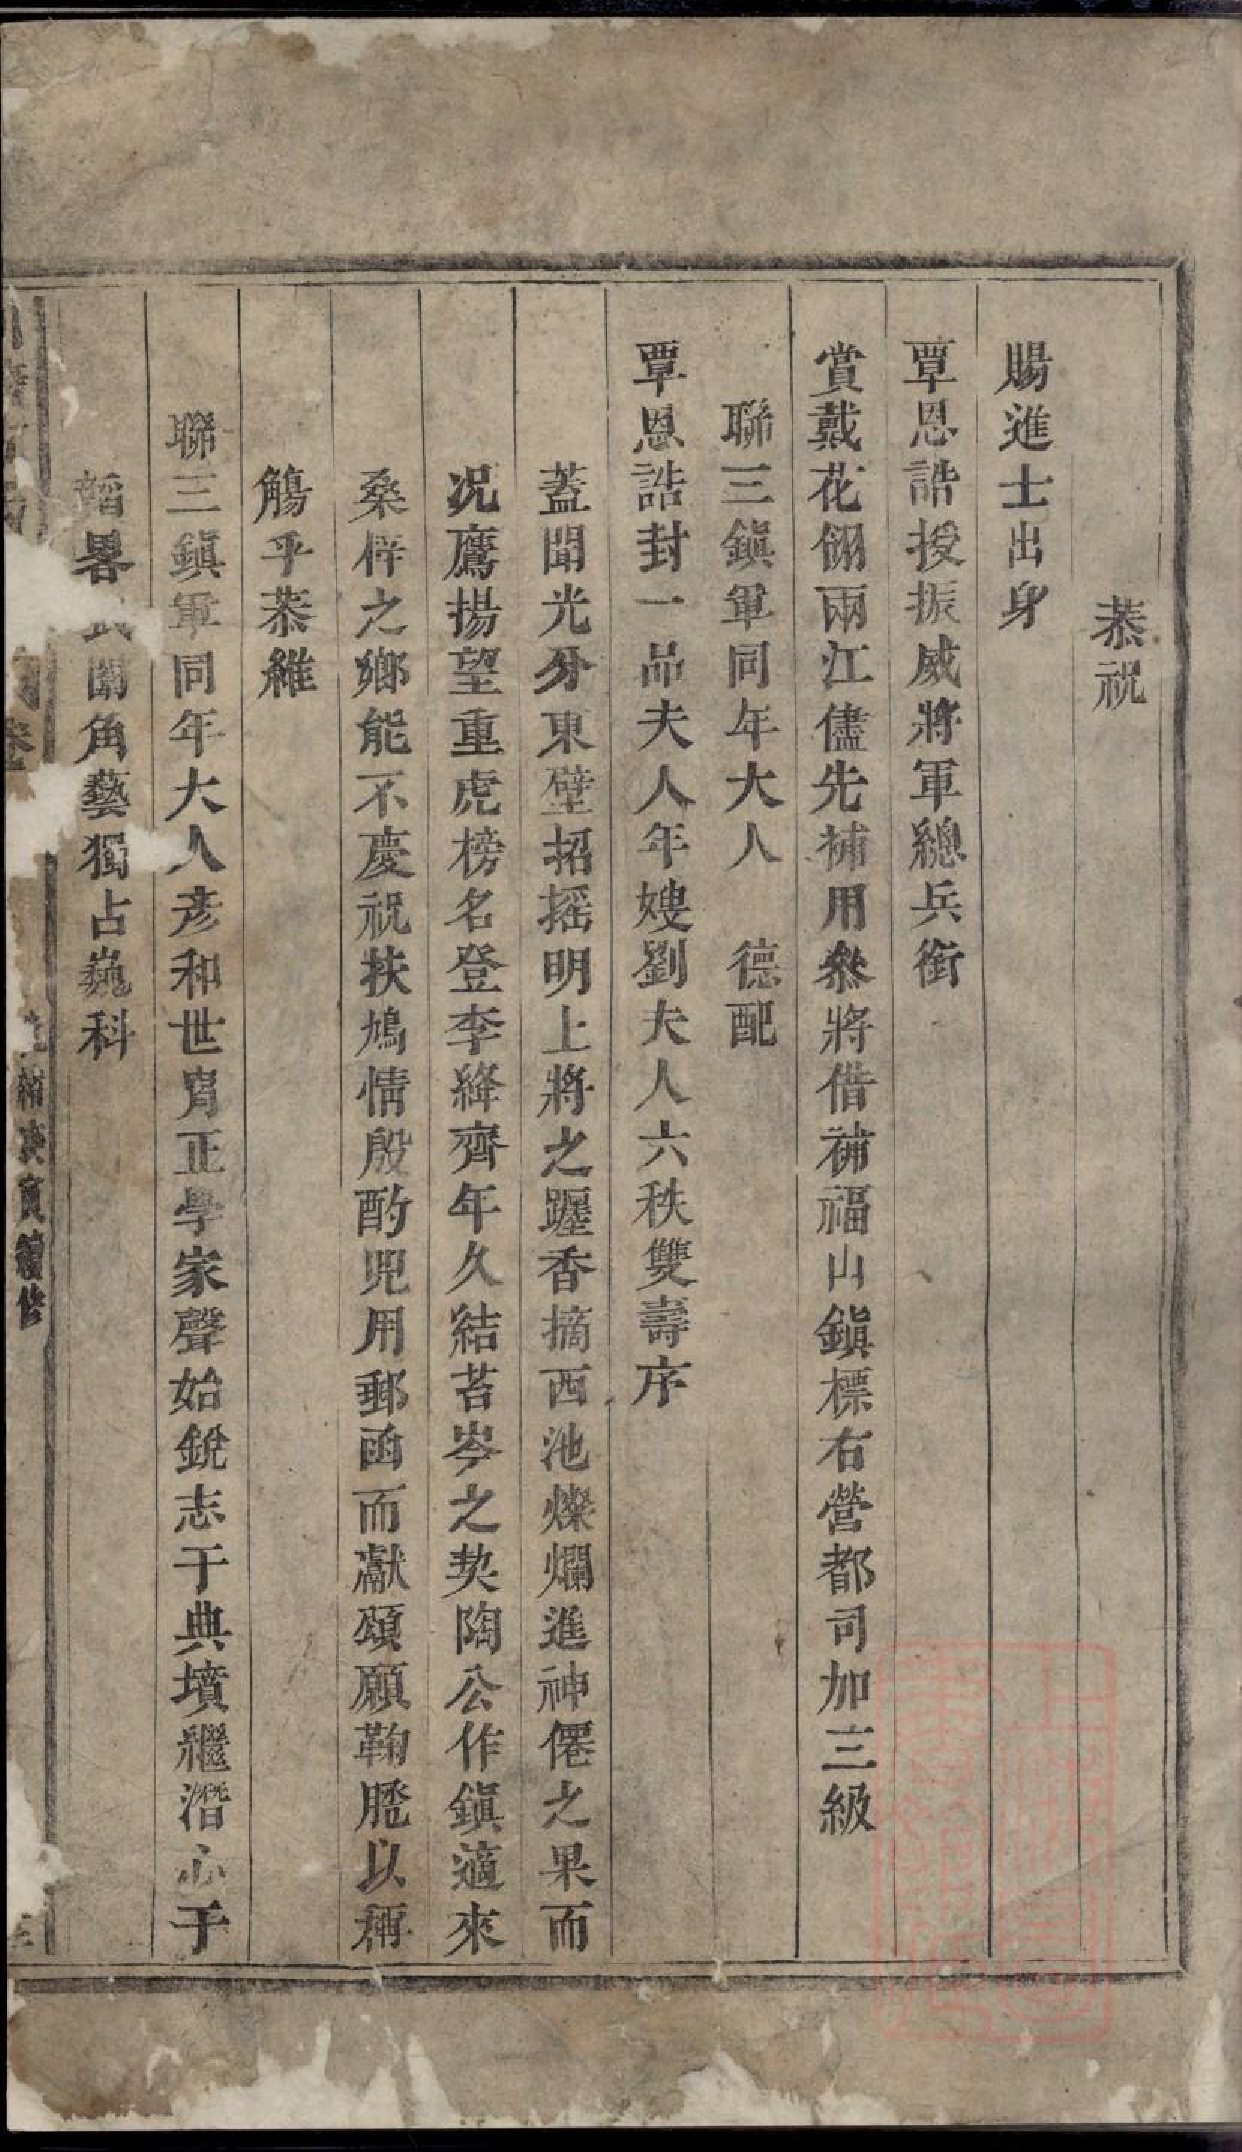 恭祝
賜進士出身
覃恩誥授振威將軍總兵銜
賞戴花翎兩江儘先補用叅將借補福山鎭標右營都司加三級
聯三鎭軍同年大人　德配
覃恩誥封一品夫人年嫂劉夫人六秩雙壽序
蓋聞光分東壁招摇明上將之躔香摘西池燦爛進神僊之果而
况鷹揚望重虎榜名登李絳齊年久結苔岑之契陶公作鎭適來
桑梓之鄉能不慶祝扶鳩情殷酌兕用郵函而獻頌願鞠𦜕以稱
觴乎恭維
聯三鎭軍同年大人彥和世胄正學家聲始銳志于典墳繼潛心于
韜畧武闈角藝獨占巍科
庚寅續修
上海圖書館藏